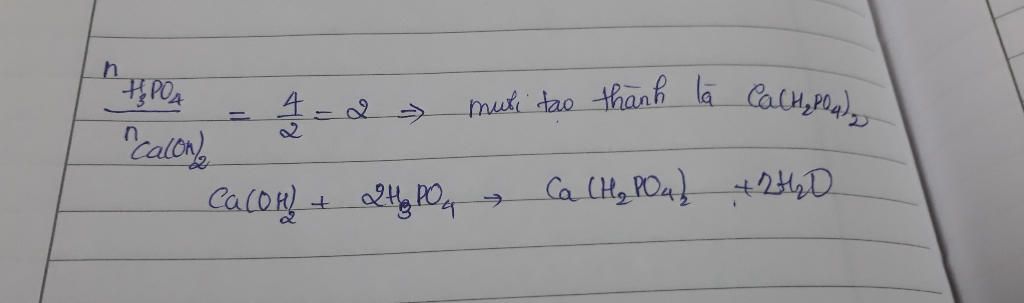 nH₃PO₄ / nCa(OH)₂ = 4/2 = 2 ⇒ muối tạo thành là Ca(H₂PO₄)₂
Ca(OH)₂ + 2H₃PO₄ → Ca(H₂PO₄)₂ + 2H₂O